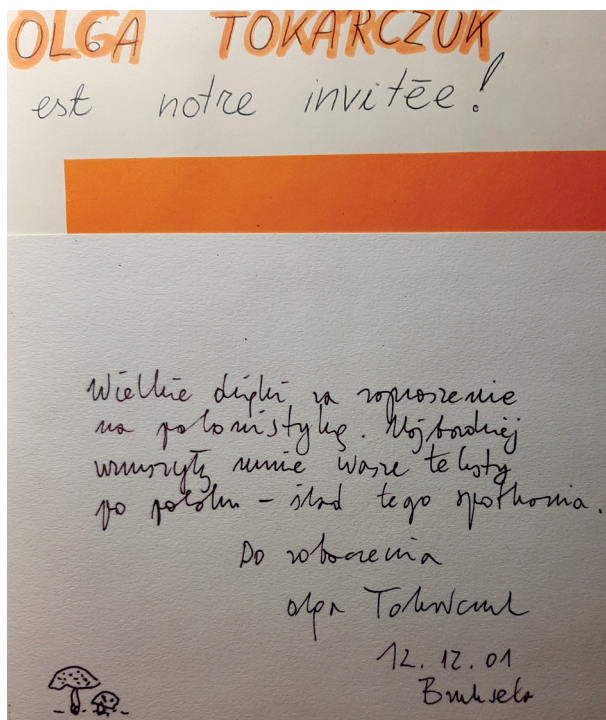 OLGA TOKARCZUK
est notre invitée!
Wielkie dzięki za zaproszenie
na polonistykę. Najbardziej
wzruszyły mnie Wasze teksty
po polsku – ślad tego spotkania.
Do zobaczenia
Olga Tokarczuk
12.12.01
Bruksela